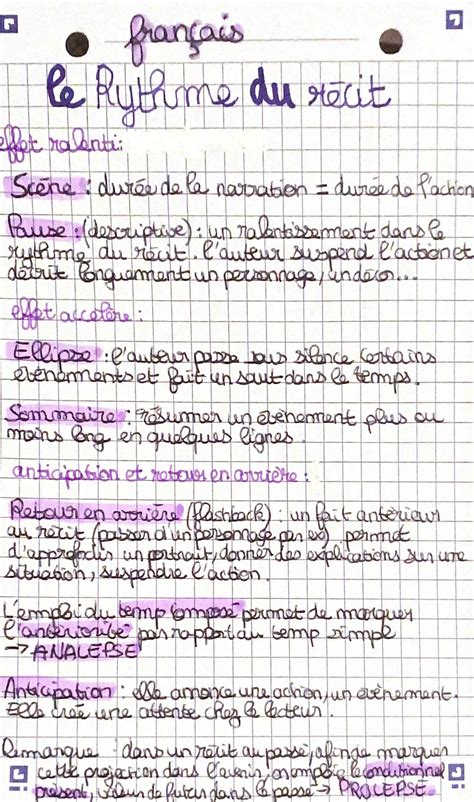 français
le Rythme du récit
effet ralenti :
Scène : durée de la narration = durée de l'action
Pause : (descriptive) : un ralentissement dans le
rythme du récit. l'auteur suspend l'action et
décrit longuement un personnage, un décor...
effet accéléré :
Ellipse : l'auteur passe sous silence certains
évènements et fait un saut dans le temps.
Sommaire : résumer un évènement plus ou
moins long en quelques lignes.
anticipation et retour en arrière :
Retour en arrière (flashback) : un fait antérieur
au récit (passer d'un personnage par ex) permet
d'approfondir un portrait, donner des explications sur une
situation, suspendre l'action.
L'emploi du temp composé permet de marquer
l'antériorité par rapport au temp simple
→ ANALEPSE
Anticipation : elle annonce une action, un évènement.
Elle crée une attente chez le lecteur.
Remarque : dans un récit au passé, afin de marquer
cette projection dans l'avenir, on emploie le conditionnel
présent, valeur de futur dans le passé → PROLEPSE